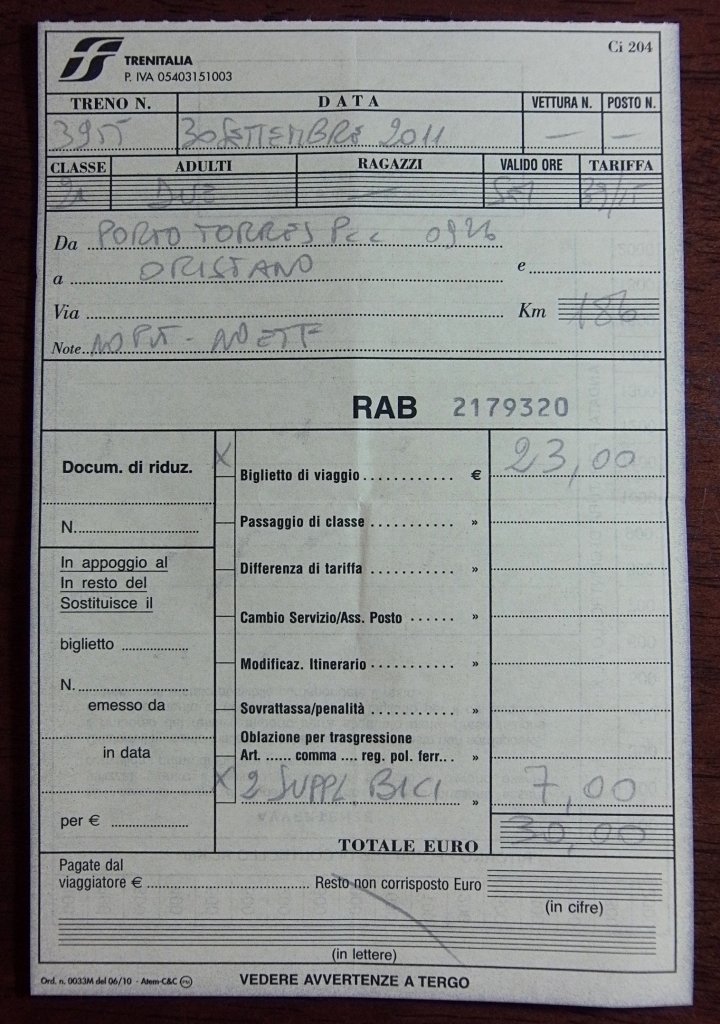 Ci 204
TRENITALIA
P. IVA 05403151003
TRENO N. DATA VETTURA N. POSTO N.
3955 30 SETTEMBRE 2011 — —
CLASSE ADULTI RAGAZZI VALIDO ORE TARIFFA
2a DUE — SEI
Da PORTO TORRES 0926
a ORISTANO e
Via Km 186
Note
RAB 2179320
Docum. di riduz.
N.
In appoggio al
In resto del
Sostituisce il
biglietto
N.
emesso da
in data
per €
X Biglietto di viaggio € 23,00
Passaggio di classe »
Differenza di tariffa »
Cambio Servizio/Ass. Posto »
Modificaz. Itinerario »
Sovrattassa/penalità »
Oblazione per trasgressione
Art. ...... comma .... reg. pol. ferr... »
X 2 SUPPL BICI » 7,00
TOTALE EURO 30,00
Pagate dal
viaggiatore € Resto non corrisposto Euro
(in cifre)
(in lettere)
Ord. n. 0033M del 06/10 - Atem-C&C
VEDERE AVVERTENZE A TERGO